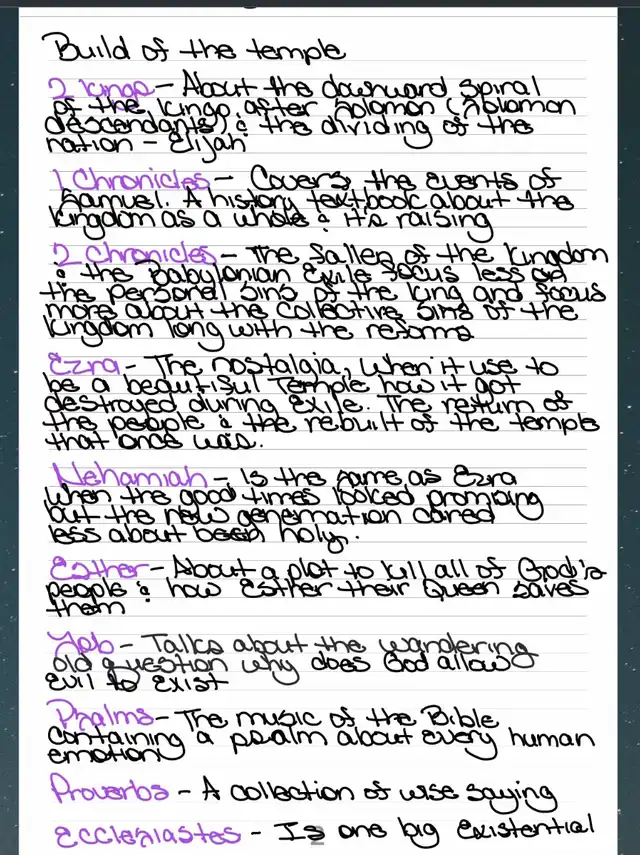 Build of the temple
2 Kings - About the downward spiral
of the kings after Solomon (Solomon
descendants) & the dividing of the
nation - Elijah
1 Chronicles - Covers the events of
Samuel. A history textbook about the
kingdom as a whole & it's raising
2 Chronicles - The fallen of the kingdom
& the Babylonian Exile focus less on
the personal sins of the king and focus
more about the collective sins of the
kingdom long with the reforms
Ezra - The nostalgia, when it use to
be a beautiful Temple how it got
destroyed during exile. The return of
the people & the rebuilt of the temple
that once was.
Nehamiah - is the same as Ezra
when the good times looked promising
but the new generation cared
less about been holy.
Esther - About a plot to kill all of God's
people & how Esther their Queen saves
them
Job - Talks about the wandering
old question why does God allow
evil to exist
Psalms - The music of the Bible
containing a psalm about every human
emotion
Proverbs - A collection of wise saying
Ecclesiastes - Is one big existential
2